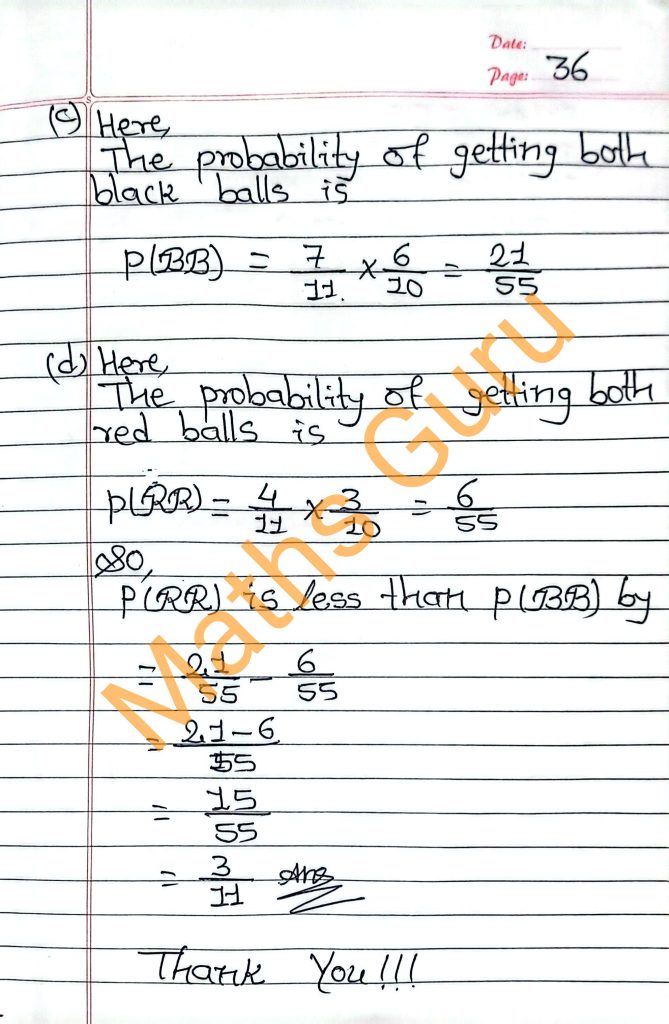 Date:
Page: 36
(c) Here,
The probability of getting both
black balls is
P(BB) = 7/11 × 6/10 = 21/55
(d) Here,
The probability of getting both
red balls is
P(RR) = 4/11 × 3/10 = 6/55
So,
P(RR) is less than P(BB) by
= 21/55 - 6/55
= 21-6/55
= 15/55
= 3/11 Ans
Thank You!!!
Maths Guru